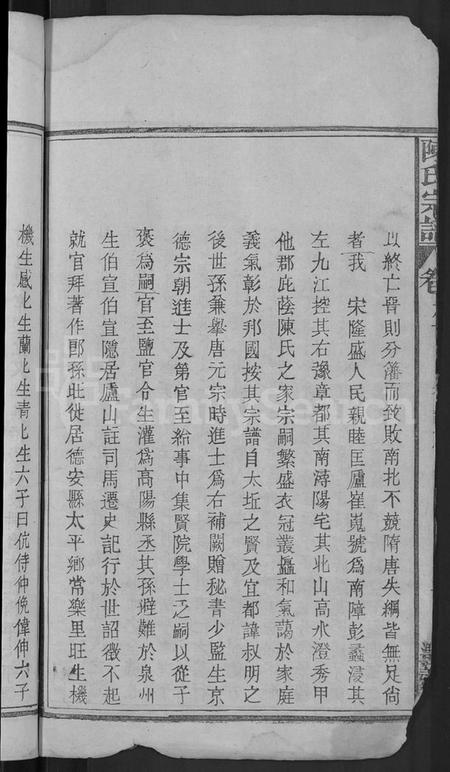 陳氏宗譜
卷
以終亡晉則分藩而致敗南北不競隋唐失綱皆無足尙
者我 宋隆盛人民親睦匡廬崔嵬號爲南障彭蠡浸其
左九江控其右豫章都其南潯陽宅其北山高水澄秀甲
他郡此蔭陳氏之家宗嗣繁盛衣冠叢矗和氣藹於家庭
義氣彰於邦國按其宗譜自太坵之賢及宜都諱叔明之
後世孫兼舉唐元宗時進士爲右補闕贈秘書少監生京
德宗朝進士及第官至給事中集賢院學士乏嗣以從子
褒爲嗣官至鹽官令生灌爲高陽縣丞其孫避難於泉州
生伯宣伯宣隱居廬山註司馬遷史記行於世詔徵不起
就官拜著作郎孫旺徙居德安縣太平鄉常樂里旺生機
機生感化生蘭化生青化生六子曰伉侍仲俛偉伸六子
FamilySearch